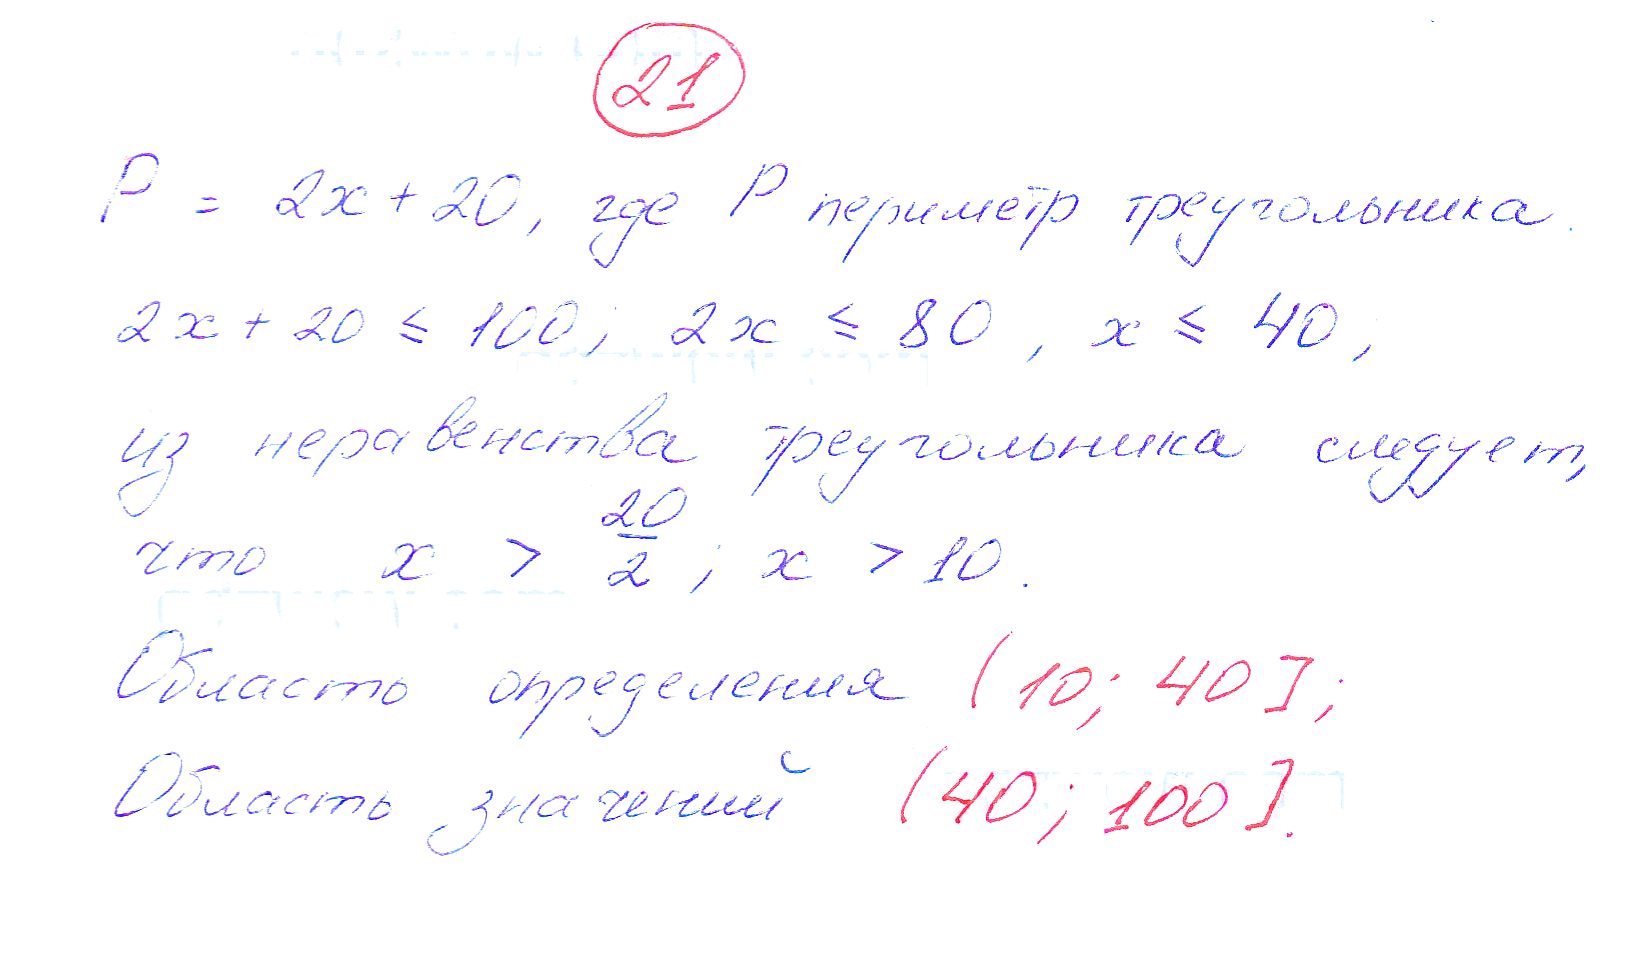 21
P = 2x + 20, где P периметр треугольника.
2x + 20 ≤ 100; 2x ≤ 80, x ≤ 40,
из неравенства треугольника следует,
что x > 20/2; x > 10.
Область определения (10; 40];
Область значений (40; 100].